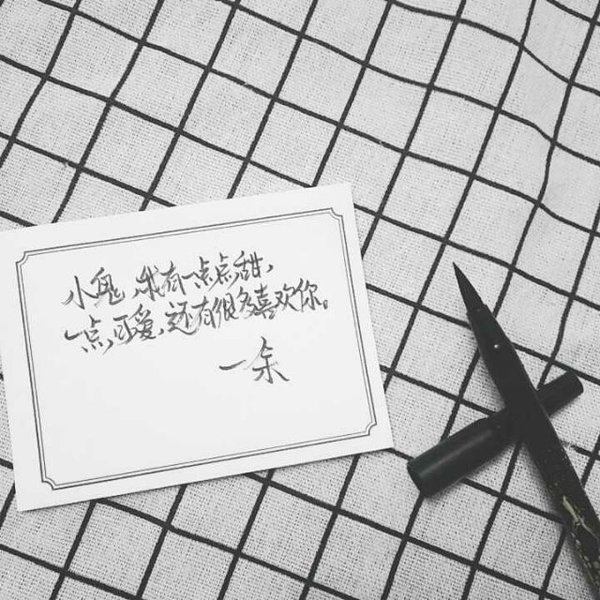 小鬼，我有一点点甜，
一点可爱，还有很多喜欢你。
一余